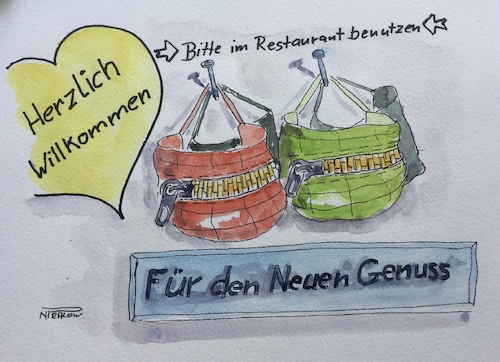 Bitte im Restaurant benutzen
Herzlich
Willkommen
Für den Neuen Genuss